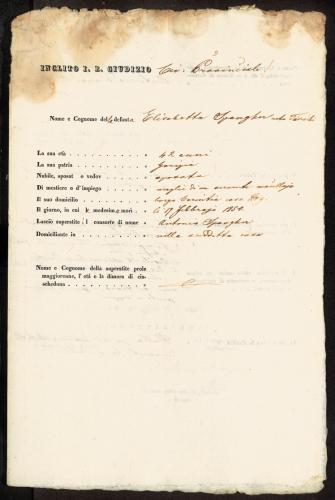 INCLITO I. R. GIUDIZIO Civ. Provinciale
Nome e Cognome del defunt Elisabetta Spangher
La sua età 42 anni
La sua patria
Nubile, sposat o vedov sposata
Di mestiere o d'impiego moglie di un
Il suo domicilio
Il giorno, in cui le medesim morì li 17 Febbrajo 1850.
Lasciò superstite il consorte di nome Antonio Spangher
Domiciliante in nella suddetta casa
Nome e Cognome della superstite prole
maggiorenne, l'età e la dimora di cia-
scheduna